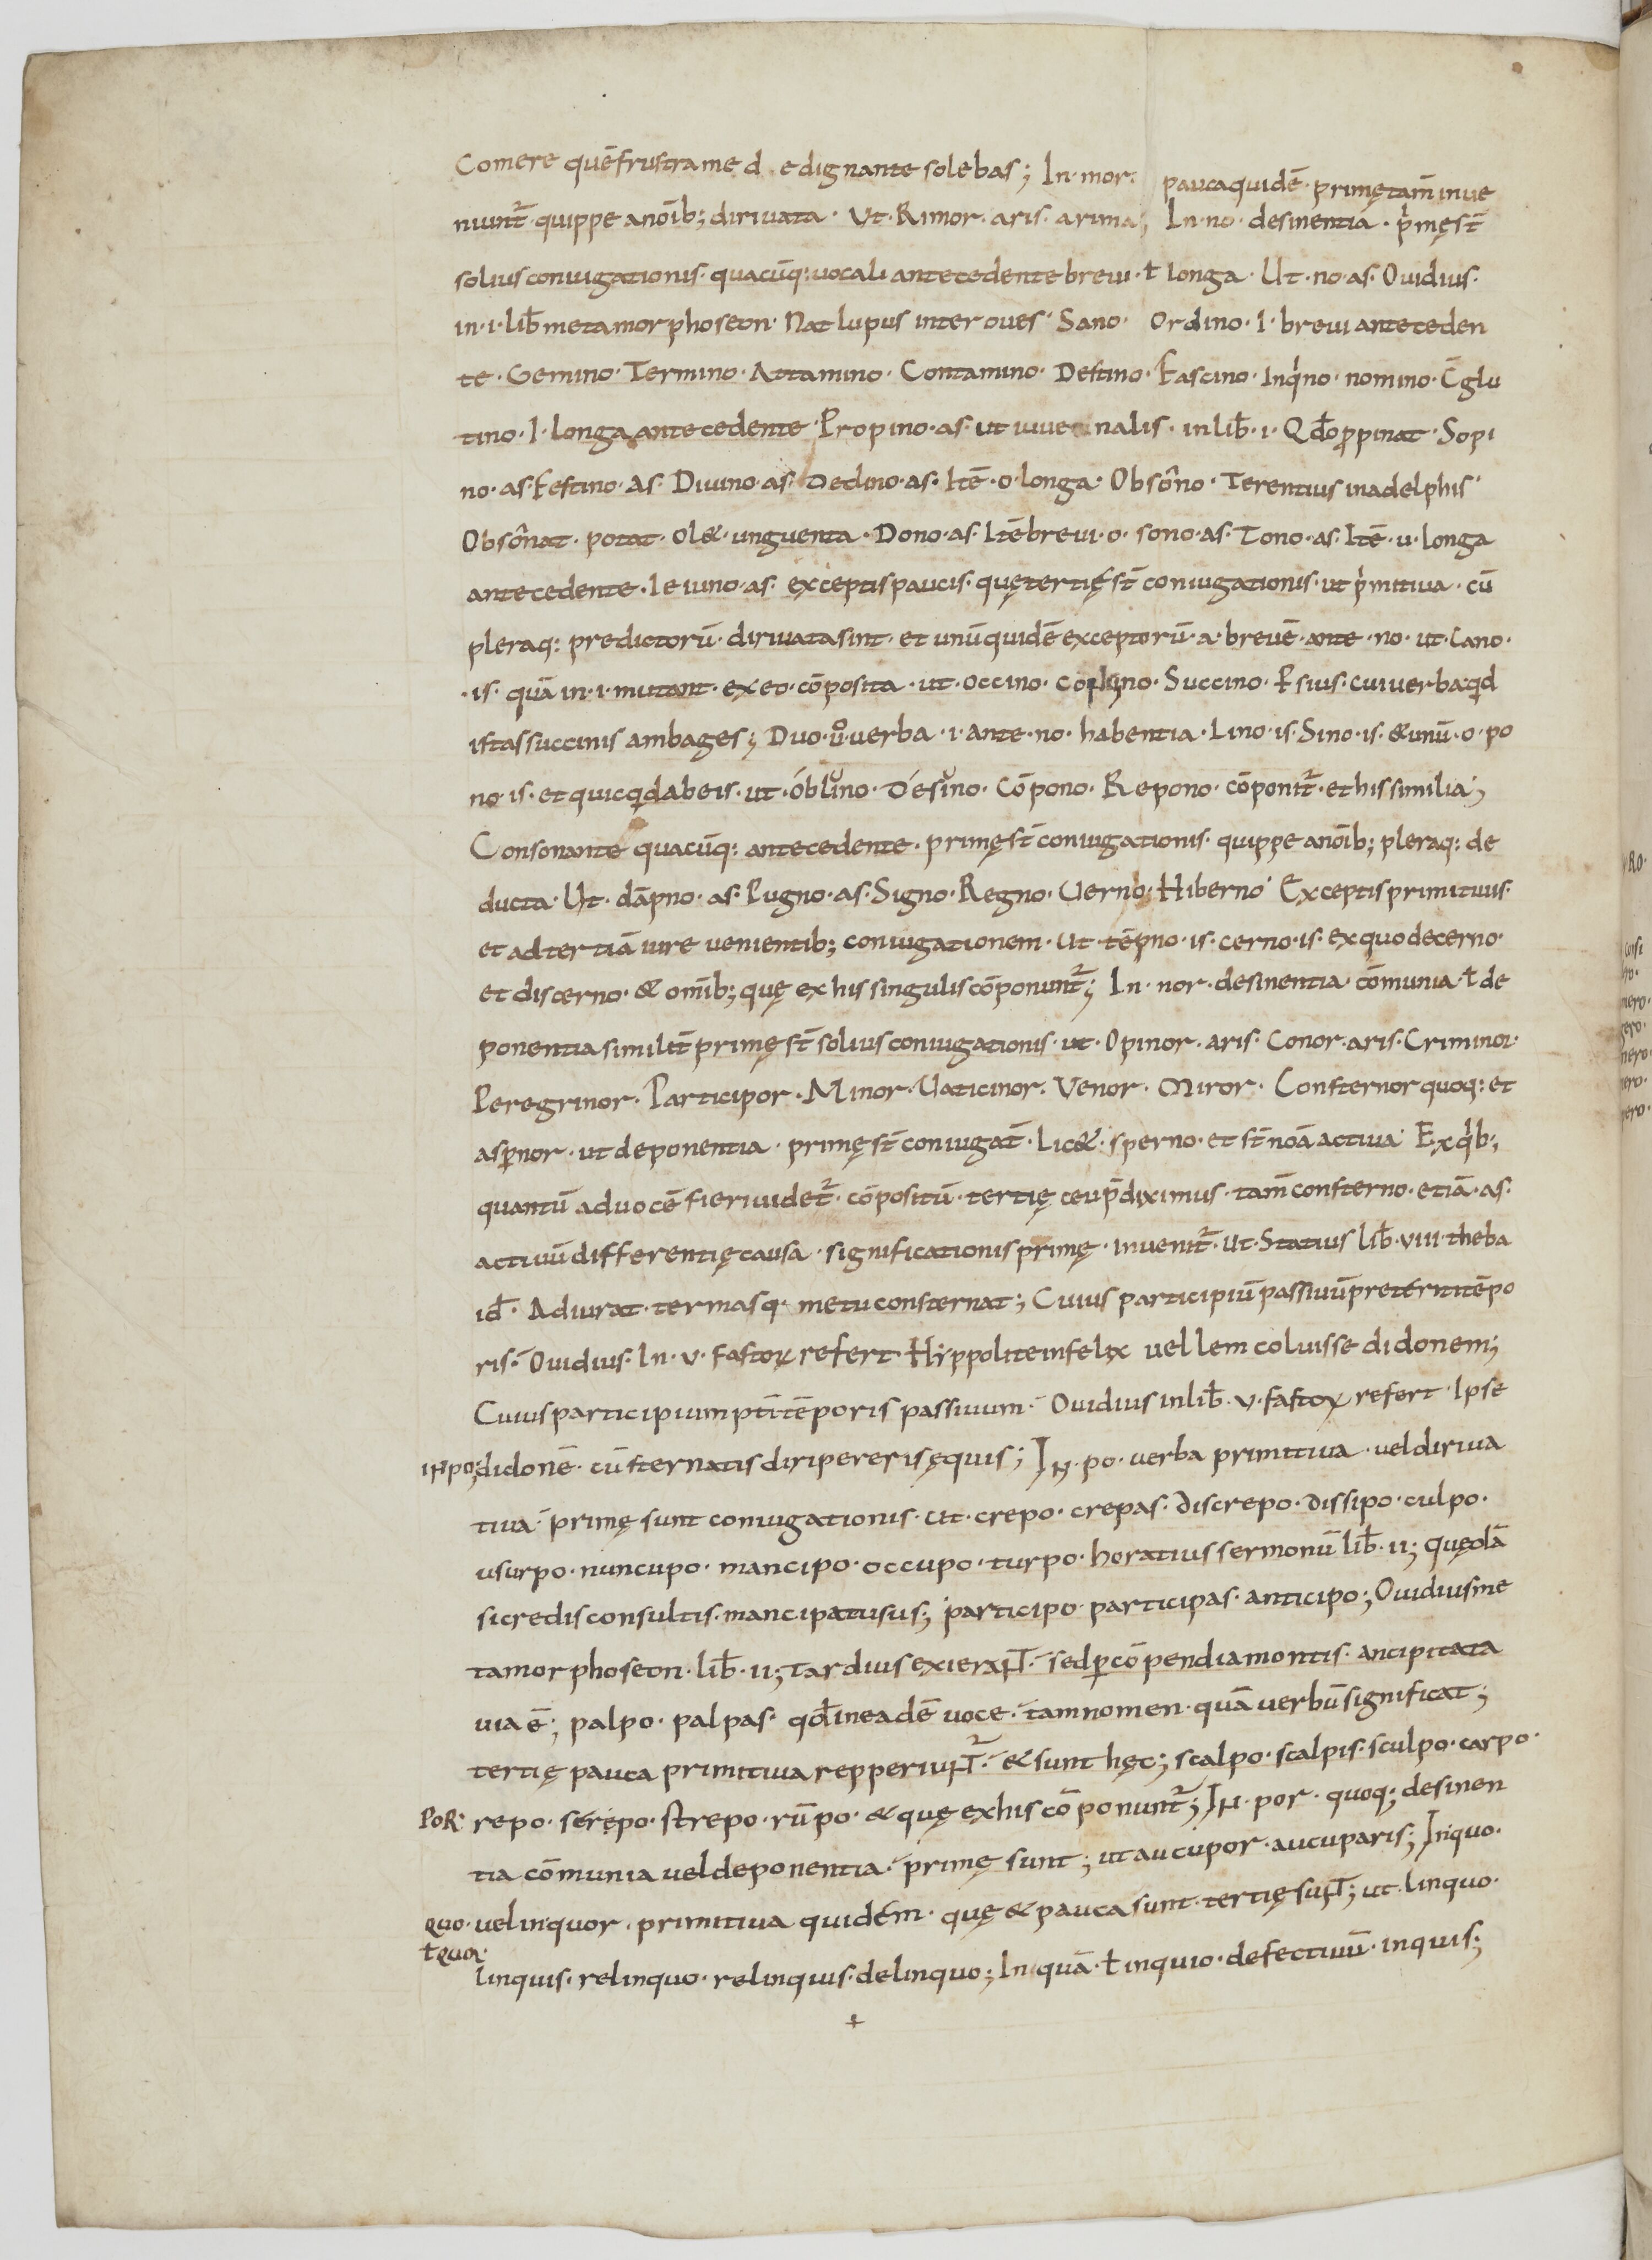 Comere quē frustra me d edignante solebas; In· mor· pauca quidē· primę tam̄ inue
niunt̄· quippe a noīb; dirivata· Ut· Rimor· aris· a rima; In· no· desinentia· p'mę st̄
solius coniugationis· quacūq: vocali antecedente brevi· ł longa· Ut· no· as· Ouidius·
in· i· lib̄ metamorphoseon· Nat lupus inter oves· Sano· Ordino· I· brevi anteceden
te· Gemino· Termino· Attamino· Contamino· Destino· Fascino· Inq'no· nomino· C̄glu
tino· I· longa antecedente· Propino· as· ut iuvenalis· in lib̄· i· Qd̄ ꝓpinat· Sopi
no· as· Festino· as· Divino· as· Declino· as· Itē· o· longa· Obsōno· Terentius in adelphis·
Obsōnat· potat· ol&· unguenta· Dono· as· Itē brevi· o· sono· as· Tono· as· Itē· u· longa
antecedente· Ieiuno· as· exceptis paucis· quę tertię st̄ coniugationis· ut p'mitiva· cū
pleraq: predictorū· dirivata sint· et unū quidē exceptorū· a· brevē· ante· no· ut· Cano·
·is· quā in· i· mutant· ex eo· cōposita· ut· occino· Succino· Psius· cui verba: qd
istas succinis ambages; Duo· ů· verba· i· ante· no· habentia· Lino· is· Sino· is· & unū· o· po
no· is· et quicqd ab eis· ut· óblino· Désino· Cōpono· Repono· cōponit̄· et his similia;
Consonante quacūq: antecedente· primę st̄ coniugationis· quippe a noīb; pleraq: de
ducta· Ut· dāpno· as· Pugno· as· Signo· Regno· Verno· Hiberno· Exceptis primitivis·
et ad tertiā iure venientib; coniugationem· Ut tēpno· is· cerno· is· ex quo decerno·
et discerno· & omīb; quę ex his singulis cōponunt̄; In· nor· desinentia· cōmunia· ł de
ponentia similit̄ primę st̄ solius coniugationis· ut· Opinor· aris· Conor· aris· Criminor·
Peregrinor· Participor· Minor· Vaticinor· Venor· Miror· Consternor quoq: et
asꝑnor· ut deponentia· primę st̄ coniugat̄· Lic&· sperno· et st̄noā activa· Ex q'b;
quantū ad vocē fieri videt̄· cōpositū· tertię ceu p̄diximus· tam̄ consterno· etiā· as·
activū differentię causa· significationis primę· invenit̄· Ut· Statius lib̄· viii· theba
id̄· Adiurat· termasq· metu consternat; Cuius participiū passivū preteriti tēpo
ris· Ouidius· In· v· fastoꝝ refert· Hyppolite infelix vellem coluisse didonem;
Cuius participium ꝑti tēporis passivum· Ouidius in lib̄· v· fastoꝝ refert· Ipse
INPO; didonē· cūsternatis diripereris ęquis; IN· po· verba primitiva· vel diriva
tiva· primę sunt coniugationis· ut· crepo· crepas· discrepo· dissipo· culpo·
usurpo· nuncupo· mancipo· occupo· turpo· horatius sermonū lib̄· ii; quędā
si credis consultis· mancipatusus; participo· participas· anticipo; Ouidius me
tamorphoseon· lib̄· ii; tardius exieraNT· sed ꝑ cōpendia montis· ancipitata
via ē; palpo· palpas· qd̄ in eadē voce· tam nomen· quā verbū significat;
tertię pauca primitiva repperiuNT̄· & sunt hęc; scalpo· scalpis· sculpo· carpo·
POR· repo· serepo· strepo· rūpo· & quę ex his cōponunt̄; IN· por· quoq; desinen
tia cōmunia vel deponentia· primę sunt; ut aucupor· aucuparis; In quo·
QUO· vel in quor· primitiva quidem· quę & pauca sunt· tertię suNT; ut· linquo·
ł QUOR·
linquis· relinquo· relinquis· delinquo; In quā· ł inquio· defectivū· inquis;